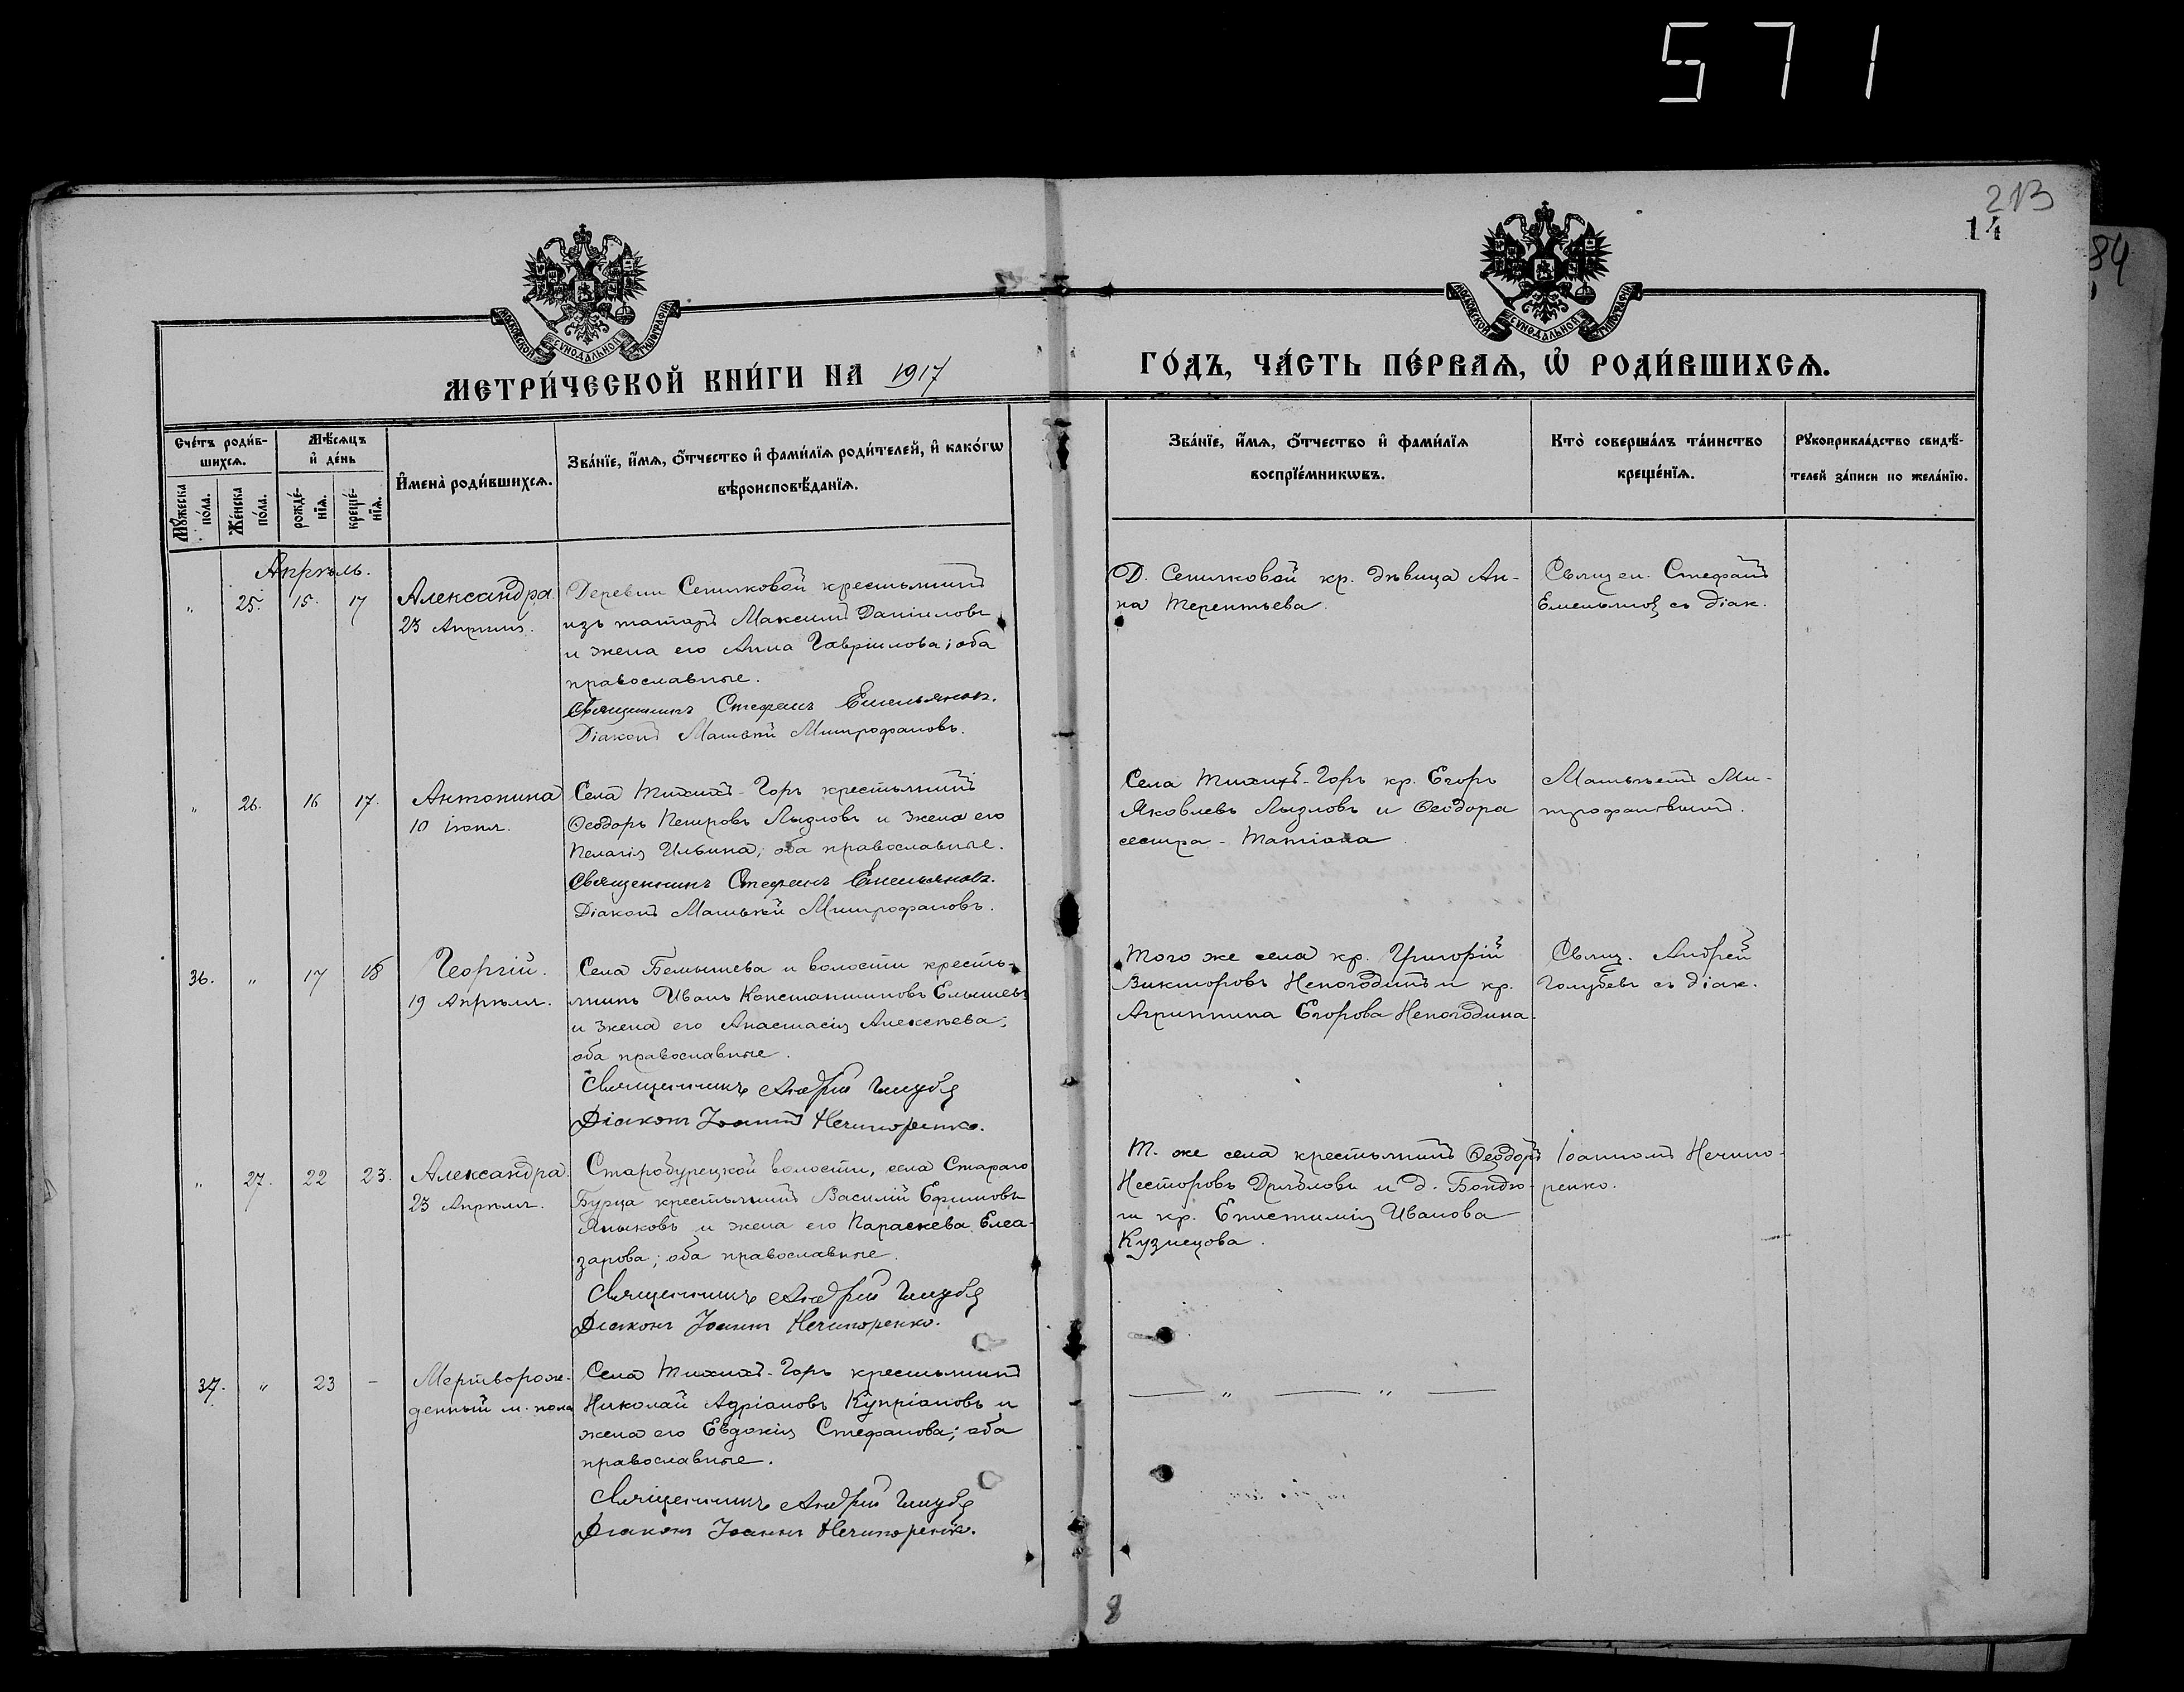 571
213
14
84
МОСКОВСКОЙ СѴНОДАЛЬНОЙ ТИПОГРАФІИ
МОСКОВСКОЙ СѴНОДАЛЬНОЙ ТИПОГРАФІИ
МЕТРИ́ЧЕСКОЙ КНИ́ГИ НА 1917
ГО́ДЪ, ЧА́СТЬ ПЕ́РВАѦ, Ѡ҆ РОДИ́ВШИХСѦ.
Сче́тъ роди́в-
шихсѧ.
Мѣ́сѧцъ
и҆ де́нь
Мꙋ́жеска
по́ла.
Же́нска
по́ла.
рожде́-
нїѧ.
креще́-
нїѧ.
И҆мена̀ роди́вшихсѧ.
Зва́нїе, и҆́мѧ, ѻ҆́тчество и҆ фами́лїѧ роди́телей, и҆ како́гѡ
вѣроисповѣ́данїѧ.
Зва́нїе, и҆́мѧ, ѻ҆́тчество и҆ фами́лїѧ
воспрїе́мникѡвъ.
Кто̀ соверша́лъ та́инство
креще́нїѧ.
Рꙋкоприкла́дство свидѣ́-
телей за́писи по жела́нїю.
Апрѣль.
" 25. 15. 17
Александра.
23 Апрѣля.
Деревни Сетяковой крестьянинъ
изъ татаръ Максимъ Даніиловъ
и жена его Анна Гавріилова; оба
православные.
Священникъ Стефанъ Емельяновъ.
Діаконъ Матвѣй Митрофановъ.
Д. Сетяковой кр. дѣвица Ан-
на Терентьева.
Священ. Стефанъ
Емельяновъ съ діак.
" 26. 16 17.
Антонина
10 іюня.
Села Тихихъ-Горъ крестьянинъ
Ѳеодоръ Петровъ Лызловъ и жена его
Пелагія Ильина; оба православные.
Священникъ Стефанъ Емельяновъ.
Діаконъ Матвѣй Митрофановъ.
Села Тихихъ-Горъ кр. Егоръ
Яковлевъ Лызловъ и Ѳеодора
сестра - Татіана
Матвѣемъ Ми-
трофановымъ.
36. " 17 18
Георгій.
19 Апрѣля.
Села Бемышева и волости кресть-
янинъ Иванъ Константиновъ Елышевъ
и жена его Анастасія Алексѣева;
оба православные.
Священникъ Андрей Голубевъ
Діаконъ Іоаннъ Нечипоренко.
Того же села кр. Григорій
Викторовъ Непогодинъ и кр.
Агриппина Егорова Непогодина.
Свящ. Андрей
Голубевъ съ діак.
" 27. 22 23.
Александра.
23 Апрѣля.
Старобурецкой волости, села Стараго
Бурца крестьянинъ Василій Ефимовъ
Языковъ и жена его Параскева Елеа-
зарова; оба православные.
Священникъ Андрей Голубевъ
Діаконъ Іоаннъ Нечипоренко.
Т. же села крестьянинъ Ѳеодоръ
Несторовъ и д. Бондю-
ги кр. Епистимія Иванова
Кузнецова.
Іоанномъ Нечипо-
ренко.
37. " 23 -
Мертворож-
денный м. пола
Села Тихихъ-Горъ крестьянинъ
Николай Адріановъ Купріановъ и
жена его Евдокія Стефанова; оба
православные.
Священникъ Андрей Голубевъ
Діаконъ Іоаннъ Нечипоренко.
— " — " —
8